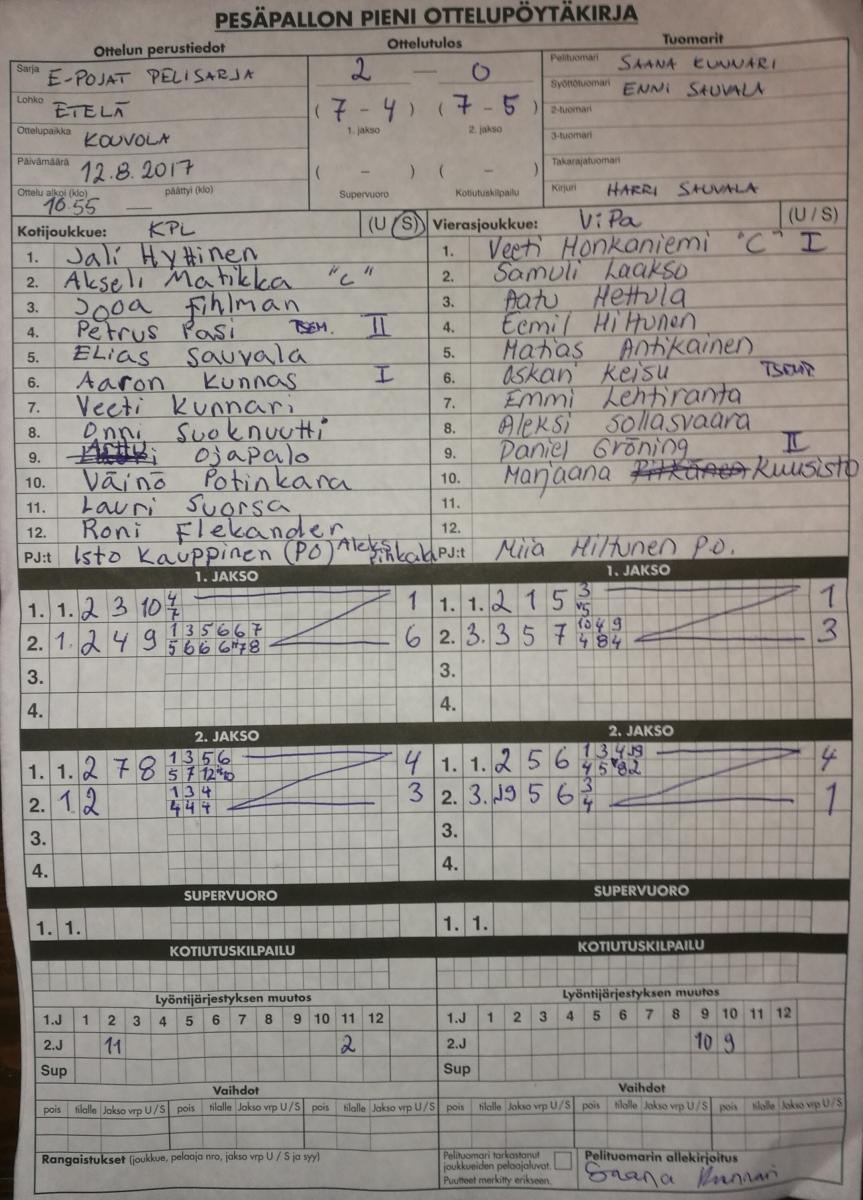 PESÄPALLON PIENI OTTELUPÖYTÄKIRJA
Ottelun perustiedot
Sarja E-POJAT PELISARJA
Lohko ETELÄ
Ottelupaikka KOUVOLA
Päivämäärä 12.8.2017
Ottelu alkoi (klo) 16.55 päättyi (klo) —
Ottelutulos
2 — 0
(7 - 4) (7 - 5)
1. jakso 2. jakso
( - ) ( - )
Supervuoro Kotiutuskilpailu
Tuomarit
Pelituomari SAANA KUNNARI
Syöttötuomari ENNI SAUVALA
2-tuomari
3-tuomari
Takarajatuomari
Kirjuri HARRI SAUVALA
Kotijoukkue: KPL (U/S)
1. Jali Hyttinen
2. Akseli Matikka "C"
3. Jooa Fihlman
4. Petrus Pasi II
5. ELias Sauvala
6. Aaron Kunnas I
7. Veeti Kunnari
8. Onni Suoknuutti
9. Ojapalo
10. Väinö Potinkara
11. Lauri Suorsa
12. Roni Flekander
PJ:t Isto Kauppinen (PO)
Vierasjoukkue: ViPa (U/S)
1. Veeti Honkaniemi "C" I
2. Samuli Laakso
3. Aatu Hettula
4. Eemil Hiltunen
5. Matias Antikainen
6. Oskari Keisu
7. Emmi Lehtiranta
8. Aleksi Sollasvaara
9. Daniel Gröning II
10. Marjaana Kuusisto
11.
12.
PJ:t Miia Hiltunen P.O.
1. JAKSO
1. 1. 2 3 10 4 7 1
2. 1. 2 4 9 1 3 5 6 6 7 6
3.
4.
1. JAKSO
1. 1. 2 1 5 3 1
2. 3. 3 5 7 10 4 9 4 8 4 3
3.
4.
2. JAKSO
1. 1. 2 7 8 1 3 5 6 4
2. 1 2 1 3 4 4 4 4 3
3.
4.
2. JAKSO
1. 1. 2 5 6 4
2. 3. 5 6 3 4 1
3.
4.
SUPERVUORO
1. 1.
SUPERVUORO
1. 1.
KOTIUTUSKILPAILU
KOTIUTUSKILPAILU
Lyöntijärjestyksen muutos
1.J 1 2 3 4 5 6 7 8 9 10 11 12
2.J 11 2
Sup
Lyöntijärjestyksen muutos
1.J 1 2 3 4 5 6 7 8 9 10 11 12
2.J 10 9
Sup
Vaihdot
pois tilalle Jakso vrp U/S pois tilalle Jakso vrp U/S pois tilalle Jakso vrp U/S
Vaihdot
pois tilalle Jakso vrp U/S pois tilalle Jakso vrp U/S pois tilalle Jakso vrp U/S
Rangaistukset (joukkue, pelaaja nro, jakso vrp U / S ja syy)
Pelituomari tarkastanut
joukkueiden pelaajaluvat.
Puutteet merkitty erikseen.
Pelituomarin allekirjoitus
Saana Kunnari